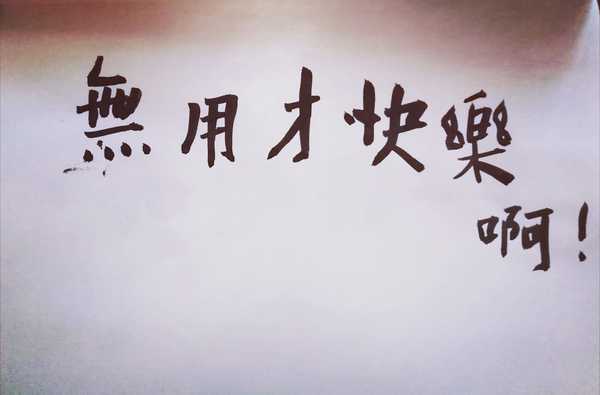 無用才快樂
啊!